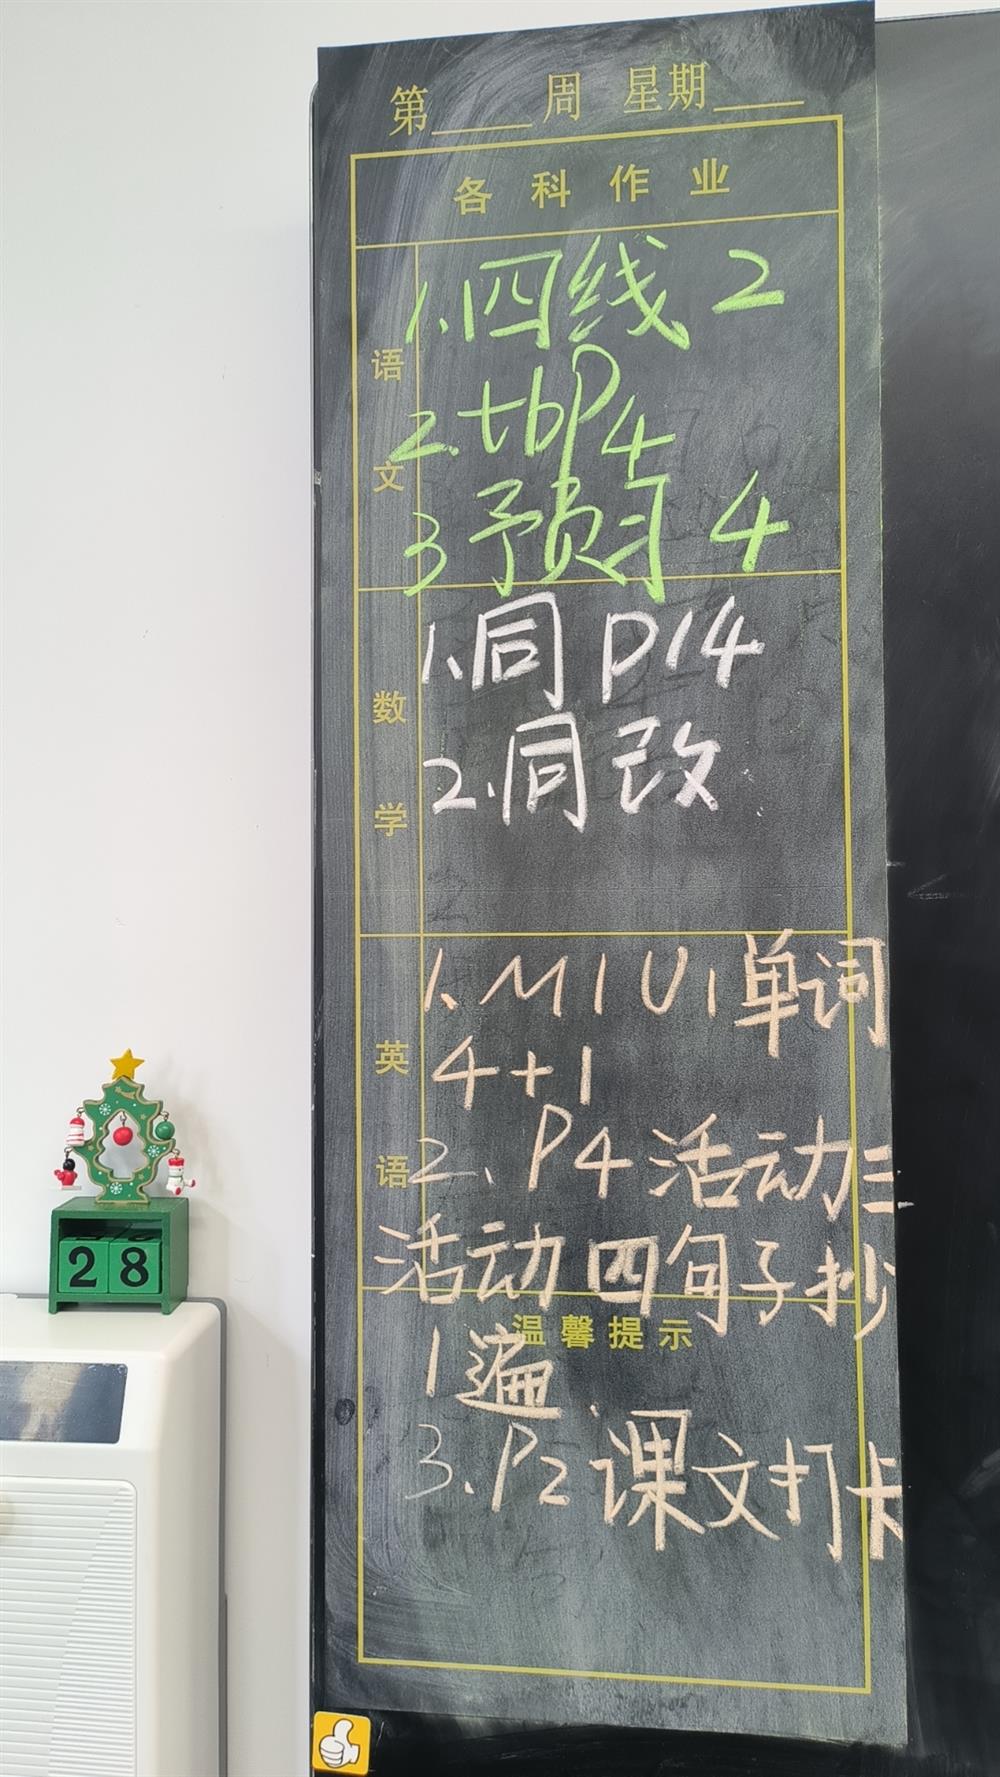 第____周 星期____
各科作业
语文
1.四线 2
2.tbP4
3 预习 4
数学
1.同 P14
2.同改
英语
1.M1U1单词
4+1
2.P4活动三
活动四句子抄
温馨提示
1遍.
3.P2课文打卡
28